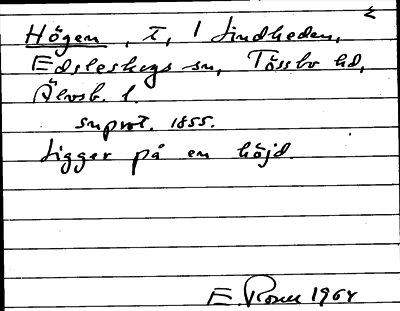 Högen, t, 1 Lindheden,
Edsleskogs sn, Tössbo hd,
Älvsb. l.
snprot. 1855.
Ligger på en höjd.
E. Rosell 1964